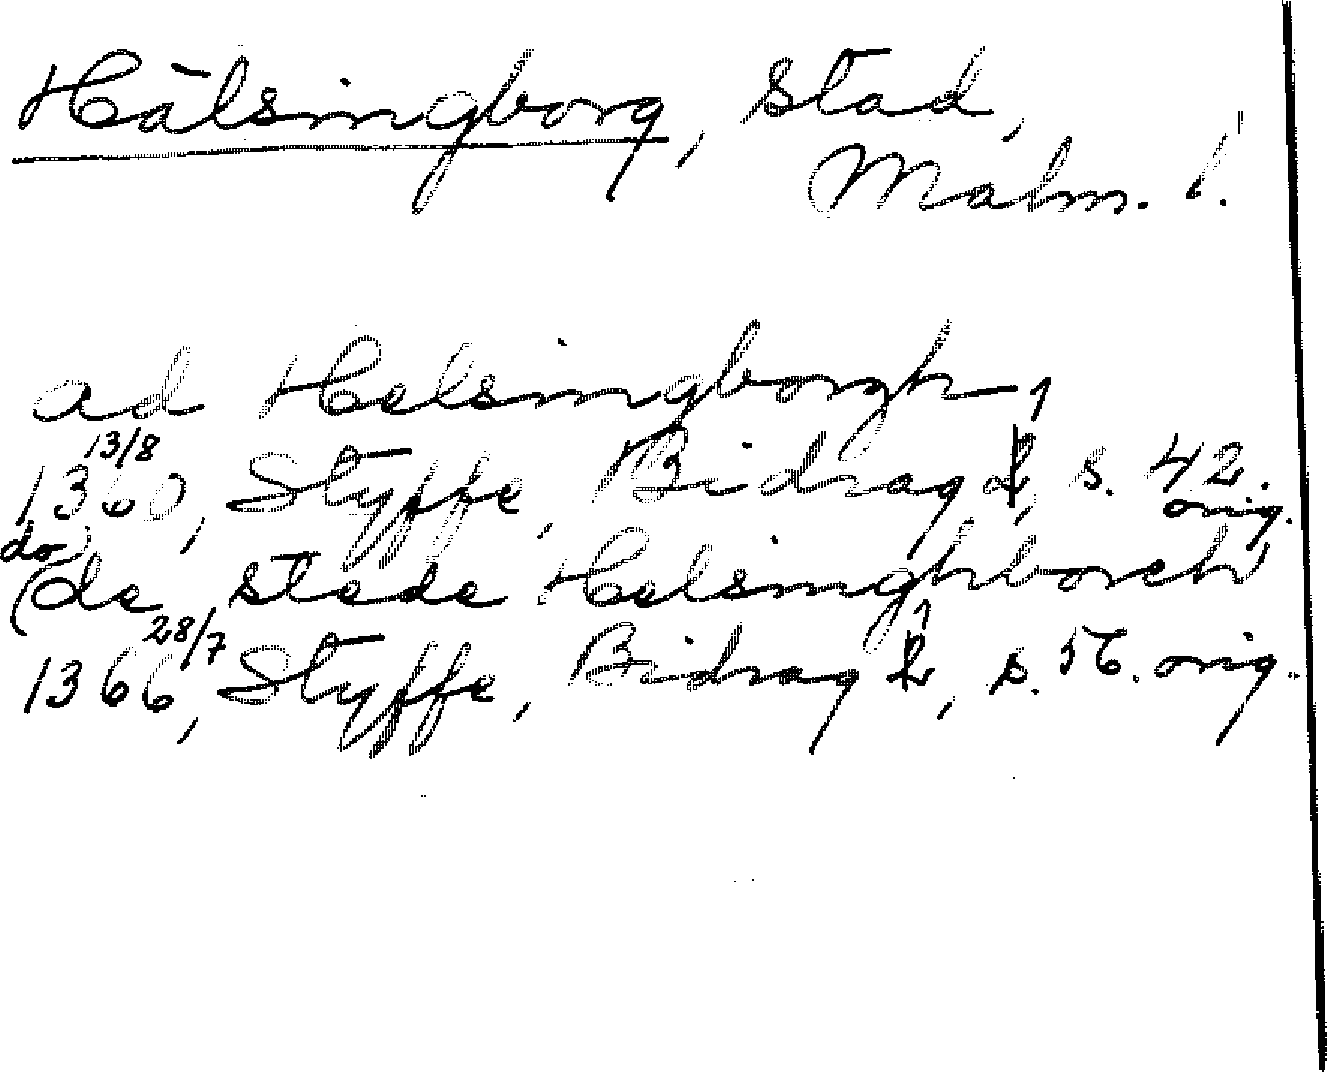 Hälsingborg, stad,
Malm. l.
ad Helsingborgh,
13/8
1360, Styffe, Bidrag 1, s. 42.
orig.
do)
(de stede Helsinghborch
28/7
1366, Styffe, Bidrag 1, s. 56. orig.